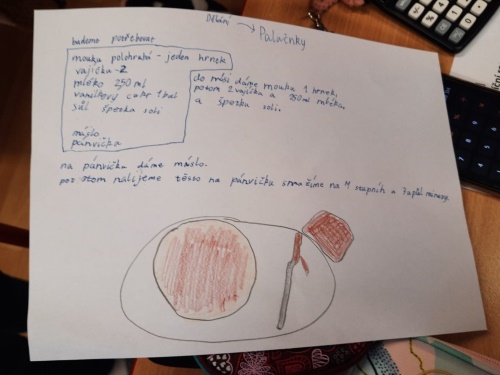 Dělání
Palačinky
budeme potřebovat
mouka polohrubá - jeden hrnek
vajíčka - 2
mléko 250 ml
vanilkový cukr 1 bal
sůl špezka soli
máslo
pánvička
do mísi dáme mouka 1 hrnek,
potom 2 vajíčka a 250 ml mléka,
a špezka soli.
na pánvička dáme máslo.
nalijeme těsso na pánvičku smažíme na 4 stupních a